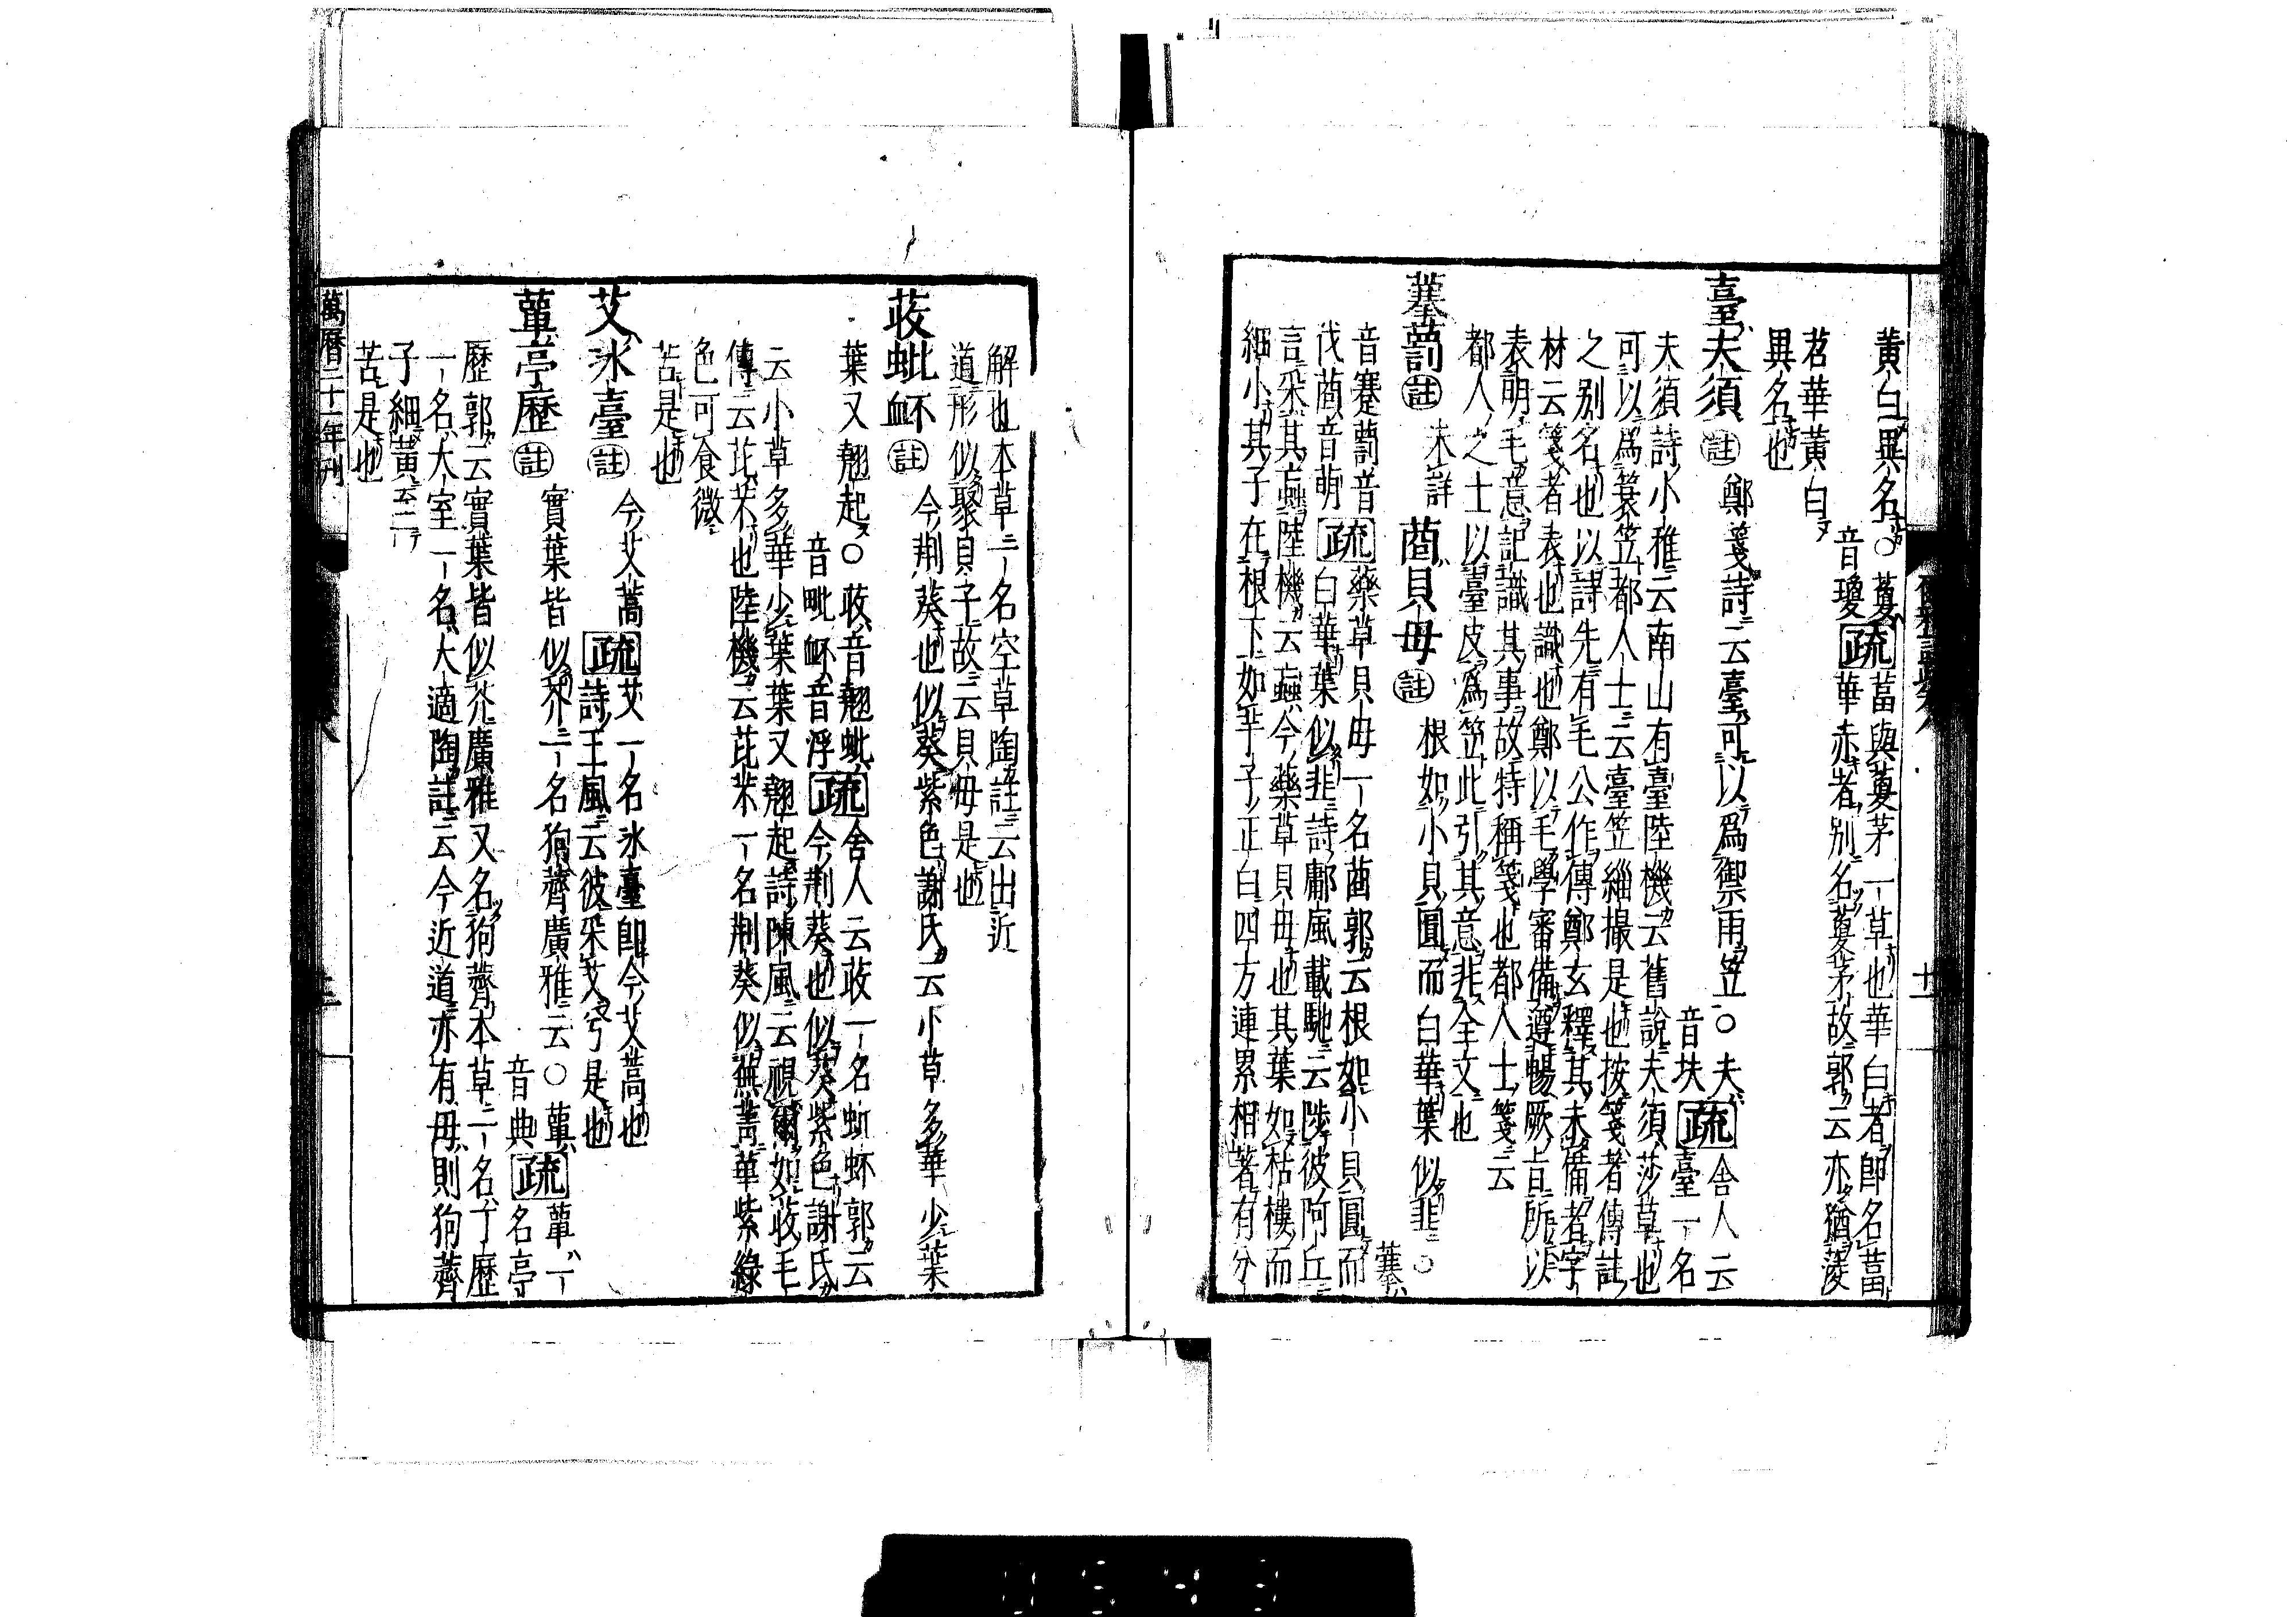 黃白異名○藑
音瓊疏葍與藑茅一草也華白者即名葍
華赤者別名藑茅故郭云亦猶蔆
苕華黃白
異名也
臺夫須註鄭箋詩云臺可以爲禦雨笠○夫
音扶疏舍人云
臺一名
夫須詩小雅云南山有臺陸機云舊說夫須莎草也
可以爲簑笠都人士云臺笠緇撮是也按箋者傳註
之別名也以詩先有毛公作傳鄭玄釋其未備者字
材云箋者表也識也鄭以毛學審備遵暢厥旨所以
表明毛意記識其事故特稱箋也都人士箋云
都人之士以臺皮爲笠此引其意非全文也
藆藅註未詳莔貝母註根如小貝圓而白華葉似韭○
藆
音蹇藅音
伐莔音萌疏藥草貝母一名莔郭云根如小貝圓而
白華葉似韭詩鄘風載馳云陟彼阿丘
言采其蝱陸機云蝱今藥草貝母也其葉如栝樓而
細小其子在根下如芋子正白四方連累相著有分
解也本草一名空草陶註云出近
道形似聚貝子故云貝母是也
荍蚍衃註今荊葵也似葵紫色謝氏云小草多華少葉
葉又翹起○荍音翹蚍
音毗衃音浮疏舍人云荍一名蚍衃郭云
今荊葵也似葵紫色謝氏
云小草多華少葉葉又翹起詩陳風云視爾如荍毛
傳云芘芣也陸機云芘芣一名荊葵似蕪菁華紫綠
色可食微
苦是也
艾冰臺註今艾蒿疏艾一名冰臺即今艾蒿也
詩王風云彼采艾兮是也
蕇亭歷註實葉皆似芥一名狗薺廣雅云○蕇
音典疏蕇一
名亭
歷郭云實葉皆似芥廣雅又名狗薺本草一名丁歷
一名大室一名大適陶註云今近道亦有母則狗薺
子細黃至
苦是也
萬曆二十一年刊